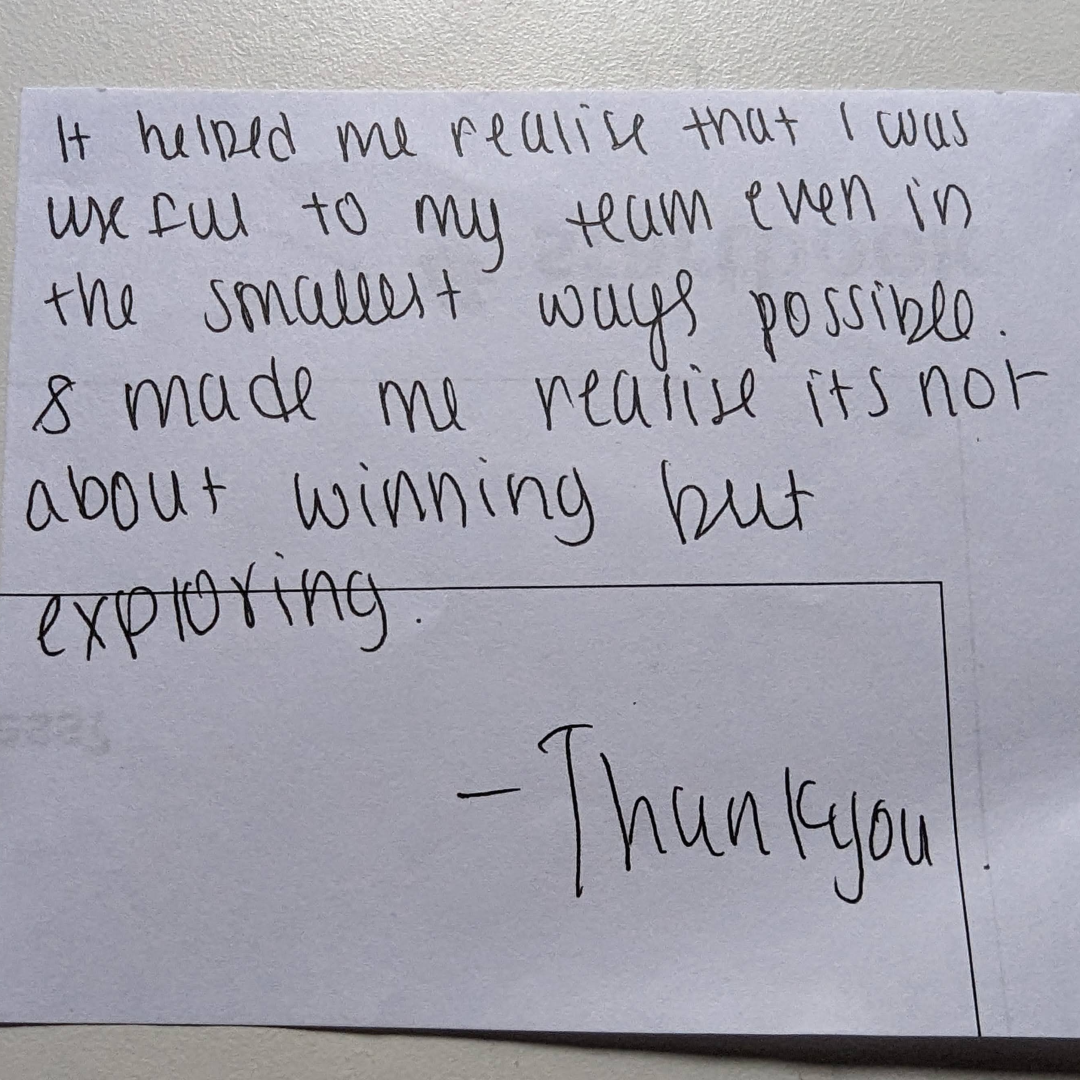 It helped me realise that I was
useful to my team even in
the smallest ways possible.
& made me realise its not
about winning but
exploring.
- Thankyou.